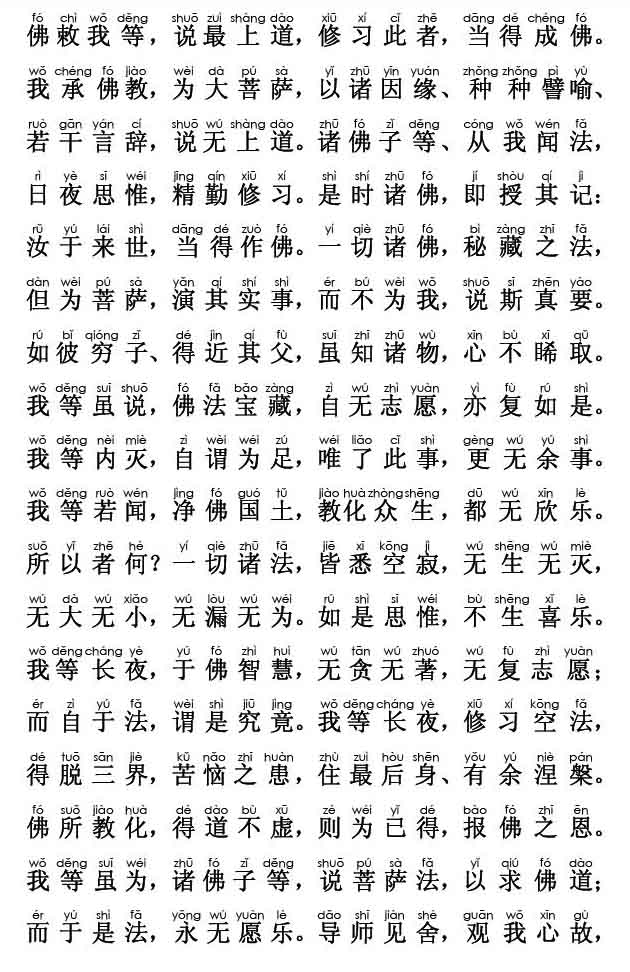 fó chì wǒ děng shuō zuì shàng dào xiū xí cǐ zhě dāng dé chéng fó
佛敕我等，说最上道，修习此者，当得成佛。
wǒ chéng fó jiào wèi dà pú sà yǐ zhū yīn yuán zhǒng zhǒng pì yù
我承佛教，为大菩萨，以诸因缘、种种譬喻、
ruò gān yán cí shuō wú shàng dào zhū fó zǐ děng cóng wǒ wén fǎ
若干言辞，说无上道。诸佛子等、从我闻法，
rì yè sī wéi jīng qín xiū xí shì shí zhū fó jí shòu qí jì
日夜思惟，精勤修习。是时诸佛，即授其记：
rǔ yú lái shì dāng dé zuò fó yí qiè zhū fó bì zàng zhī fǎ
汝于来世，当得作佛。一切诸佛，秘藏之法，
dàn wèi pú sà yǎn qí shí shì ér bú wèi wǒ shuō sī zhēn yào
但为菩萨，演其实事，而不为我，说斯真要。
rú bǐ qióng zǐ dé jìn qí fù suī zhī zhū wù xīn bù xī qǔ
如彼穷子、得近其父，虽知诸物，心不睎取。
wǒ děng suī shuō fó fǎ bǎo zàng zì wú zhì yuàn yì fù rú shì
我等虽说，佛法宝藏，自无志愿，亦复如是。
wǒ děng nèi miè zì wèi wéi zú wéi liǎo cǐ shì gèng wú yú shì
我等内灭，自谓为足，唯了此事，更无余事。
wǒ děng ruò wén jìng fó guó tǔ jiào huà zhòng shēng dū wú xīn lè
我等若闻，净佛国土，教化众生，都无欣乐。
suǒ yǐ zhě hé yí qiè zhū fǎ jiē xī kōng jì wú shēng wú miè
所以者何？一切诸法，皆悉空寂，无生无灭，
wú dà wú xiǎo wú lòu wú wéi rú shì sī wéi bù shēng xǐ lè
无大无小，无漏无为。如是思惟，不生喜乐。
wǒ děng cháng yè yú fó zhì huì wú tān wú zhuó wú fù zhì yuàn
我等长夜，于佛智慧，无贪无著，无复志愿；
ér zì yú fǎ wèi shì jiū jìng wǒ děng cháng yè xiū xí kōng fǎ
而自于法，谓是究竟。我等长夜，修习空法，
dé tuō sān jiè kǔ nǎo zhī huàn zhù zuì hòu shēn yǒu yú niè pán
得脱三界，苦恼之患，住最后身、有余涅槃。
fó suǒ jiào huà dé dào bù xū zé wéi yǐ dé bào fó zhī ēn
佛所教化，得道不虚，则为已得，报佛之恩。
wǒ děng suī wéi zhū fó zǐ děng shuō pú sà fǎ yǐ qiú fó dào
我等虽为，诸佛子等，说菩萨法，以求佛道；
ér yú shì fǎ yǒng wú yuàn lè dǎo shī jiàn shě guān wǒ xīn gù
而于是法，永无愿乐。导师见舍，观我心故，